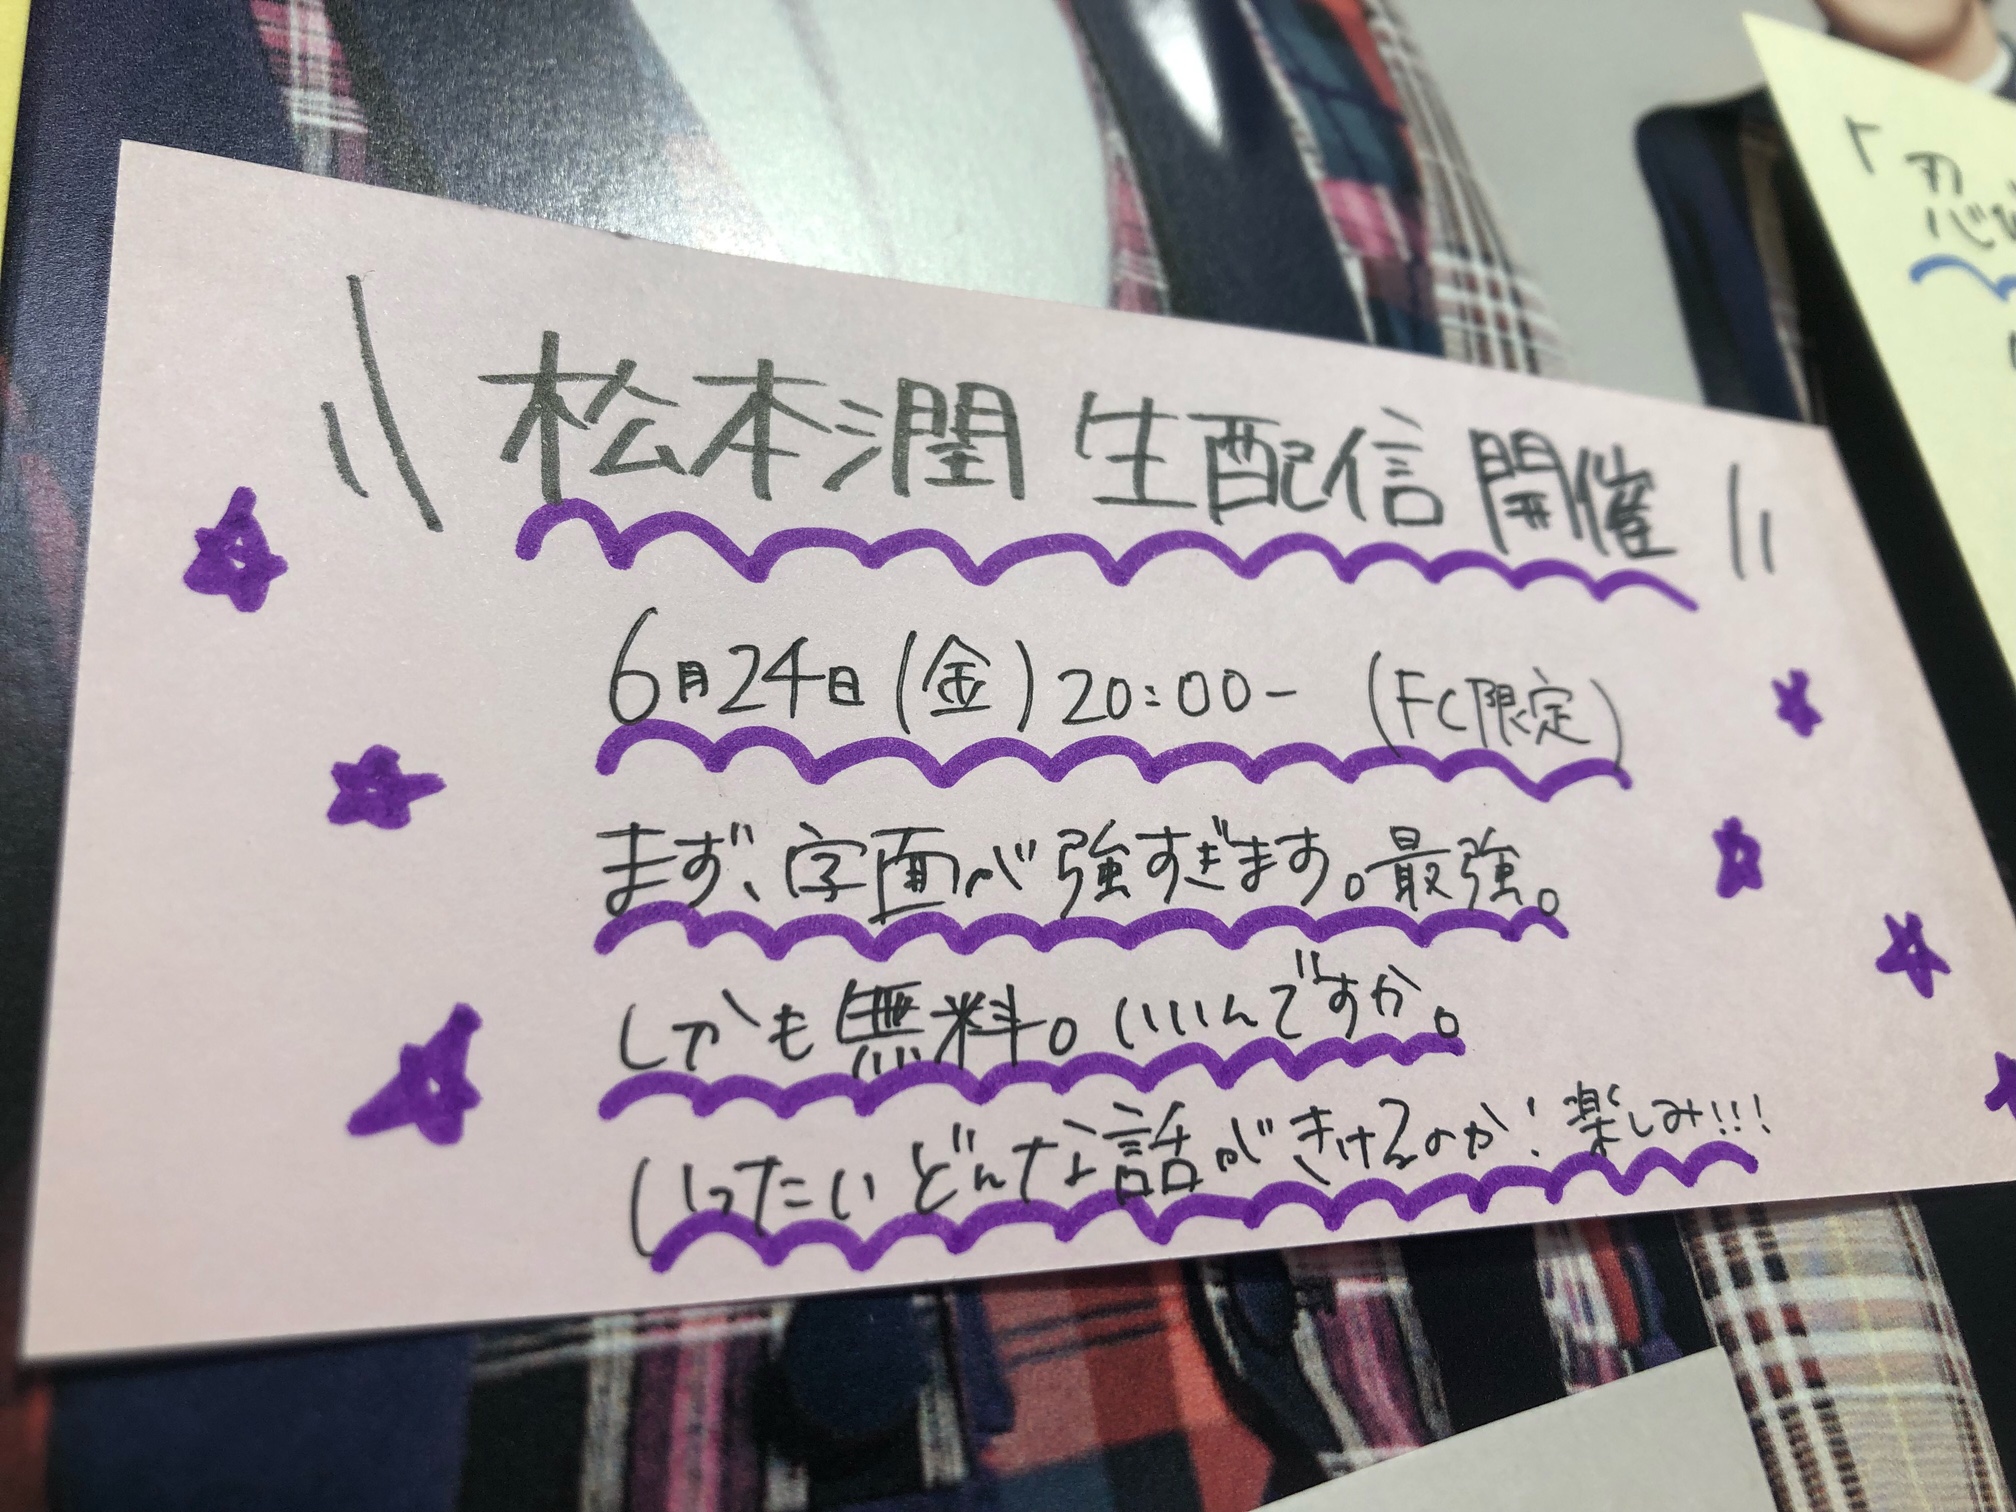 \\ 松本潤 生配信 開催 //
6月24日(金)20:00- (FC限定)
まず、字面が強すぎます。最強。
しかも無料。いいんですか。
いったいどんな話がきけるのか! 楽しみ!!!
「忍